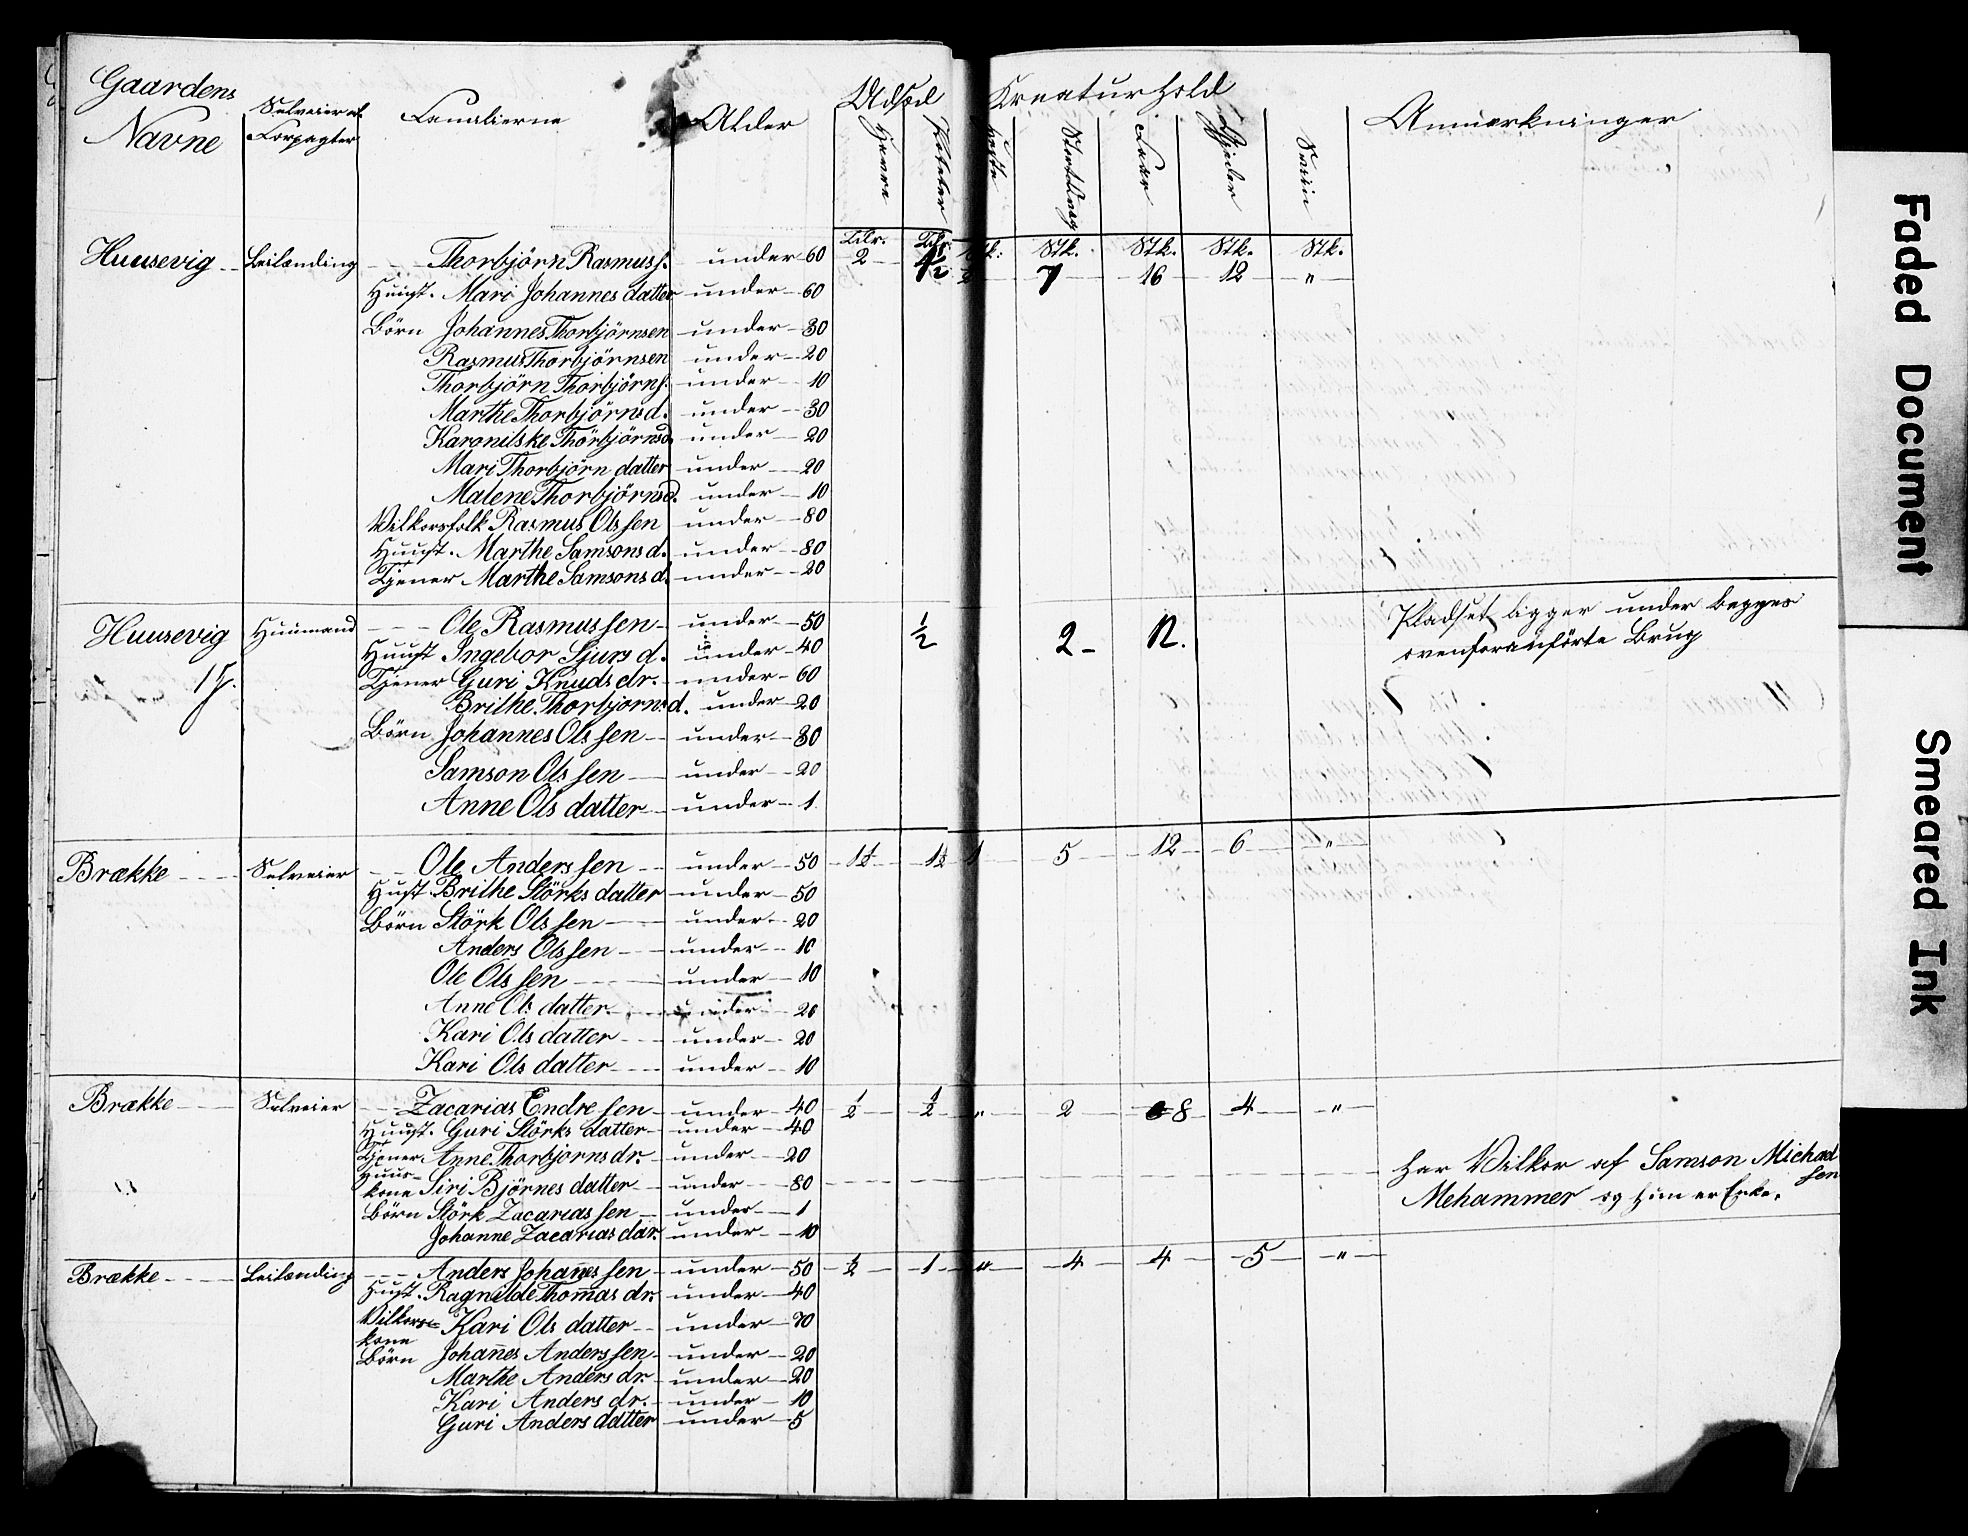 Gaardens Navne | Selveier el. Forpagter | Familierne | Alder | Udsæd | Kreaturhold | Anmærkninger
Havre | Poteter | Heste | Storfæ | Faar | Gjeder | Sviin
Tdr. | Tdr. | Stk. | Stk. | Stk. | Stk. | Stk.
Huusevig | Leilænding | Thorbjörn Rasmuss. | under 60 | 2 | 4½ | 2 | 7 | 16 | 12 | "
Huust. Mari Johannes datter under 60
Börn Johannes Thorbjörnsen under 30
Rasmus Thorbjörnsen under 20
Thorbjörn Thorbjörns. under 10
Marthe Thorbjörnsd. under 30
Karonilske Thörbjörnsd. under 20
Mari Thorbjörn datter under 20
Malene Thorbjörnsd. under 10
Vilkorsfolk Rasmus Olssen under 80
Huust. Marthe Samsonsd. under 80
Tjener Marthe Samsonsd. under 20
Huusevig | Huusmand | Ole Rasmussen under 50 | ½ | 2 | 12. | Pladset ligger under begges
Huust Ingebor Sjursd. under 40 | ovenforanförte Brug
Tjener Guri Knudsdr. under 60
Brithe Thorbjornsd. under 20
Börn Johannes Olssen under 30
Samson Olssen under 20
Anne Olsdatter under 1
Brække | Selveier | Ole Anderssen under 50 | 1½ | 1½ | 1 | 5 | 12 | 6 | "
Hust. Brithe Störksdatter under 50
Börn Störk Olssen under 20
Anders Olssen under 10
Ole Olssen under 10
Anne Olsdatter under 20
Kari Olsdatter under 20
Kari Olsdatter under 10
Brække | Selveier | Zacarias Endresen under 40 | ½ | ½ | " | 2 | 8 | 4 | "
Huust. Guri Störksdatter under 40
Tjener Anne Thorbjornsdr. under 20
Huuskone Siri Björnesdatter under 80 | har Vilkor af Samson Michaelsen
Börn Störk Zacariassen under 1 | Mehammer og hun er Enke.
Johanne Zacariasdar. under 10
Brække | Leilænding | Anders Johan̄essen under 50 | ½ | 1 | " | 4 | 4 | 5 | "
Hust. Ragnilde Thom̄asdr. under 40
Vilkorskone Kari Olsdatter under 70
Börn Johan̄es Anderssen under 20
Marthe Andersdr. under 20
Kari Andersdr. under 10
Guri Andersdatter under 5
Faded Document
Smeared Ink